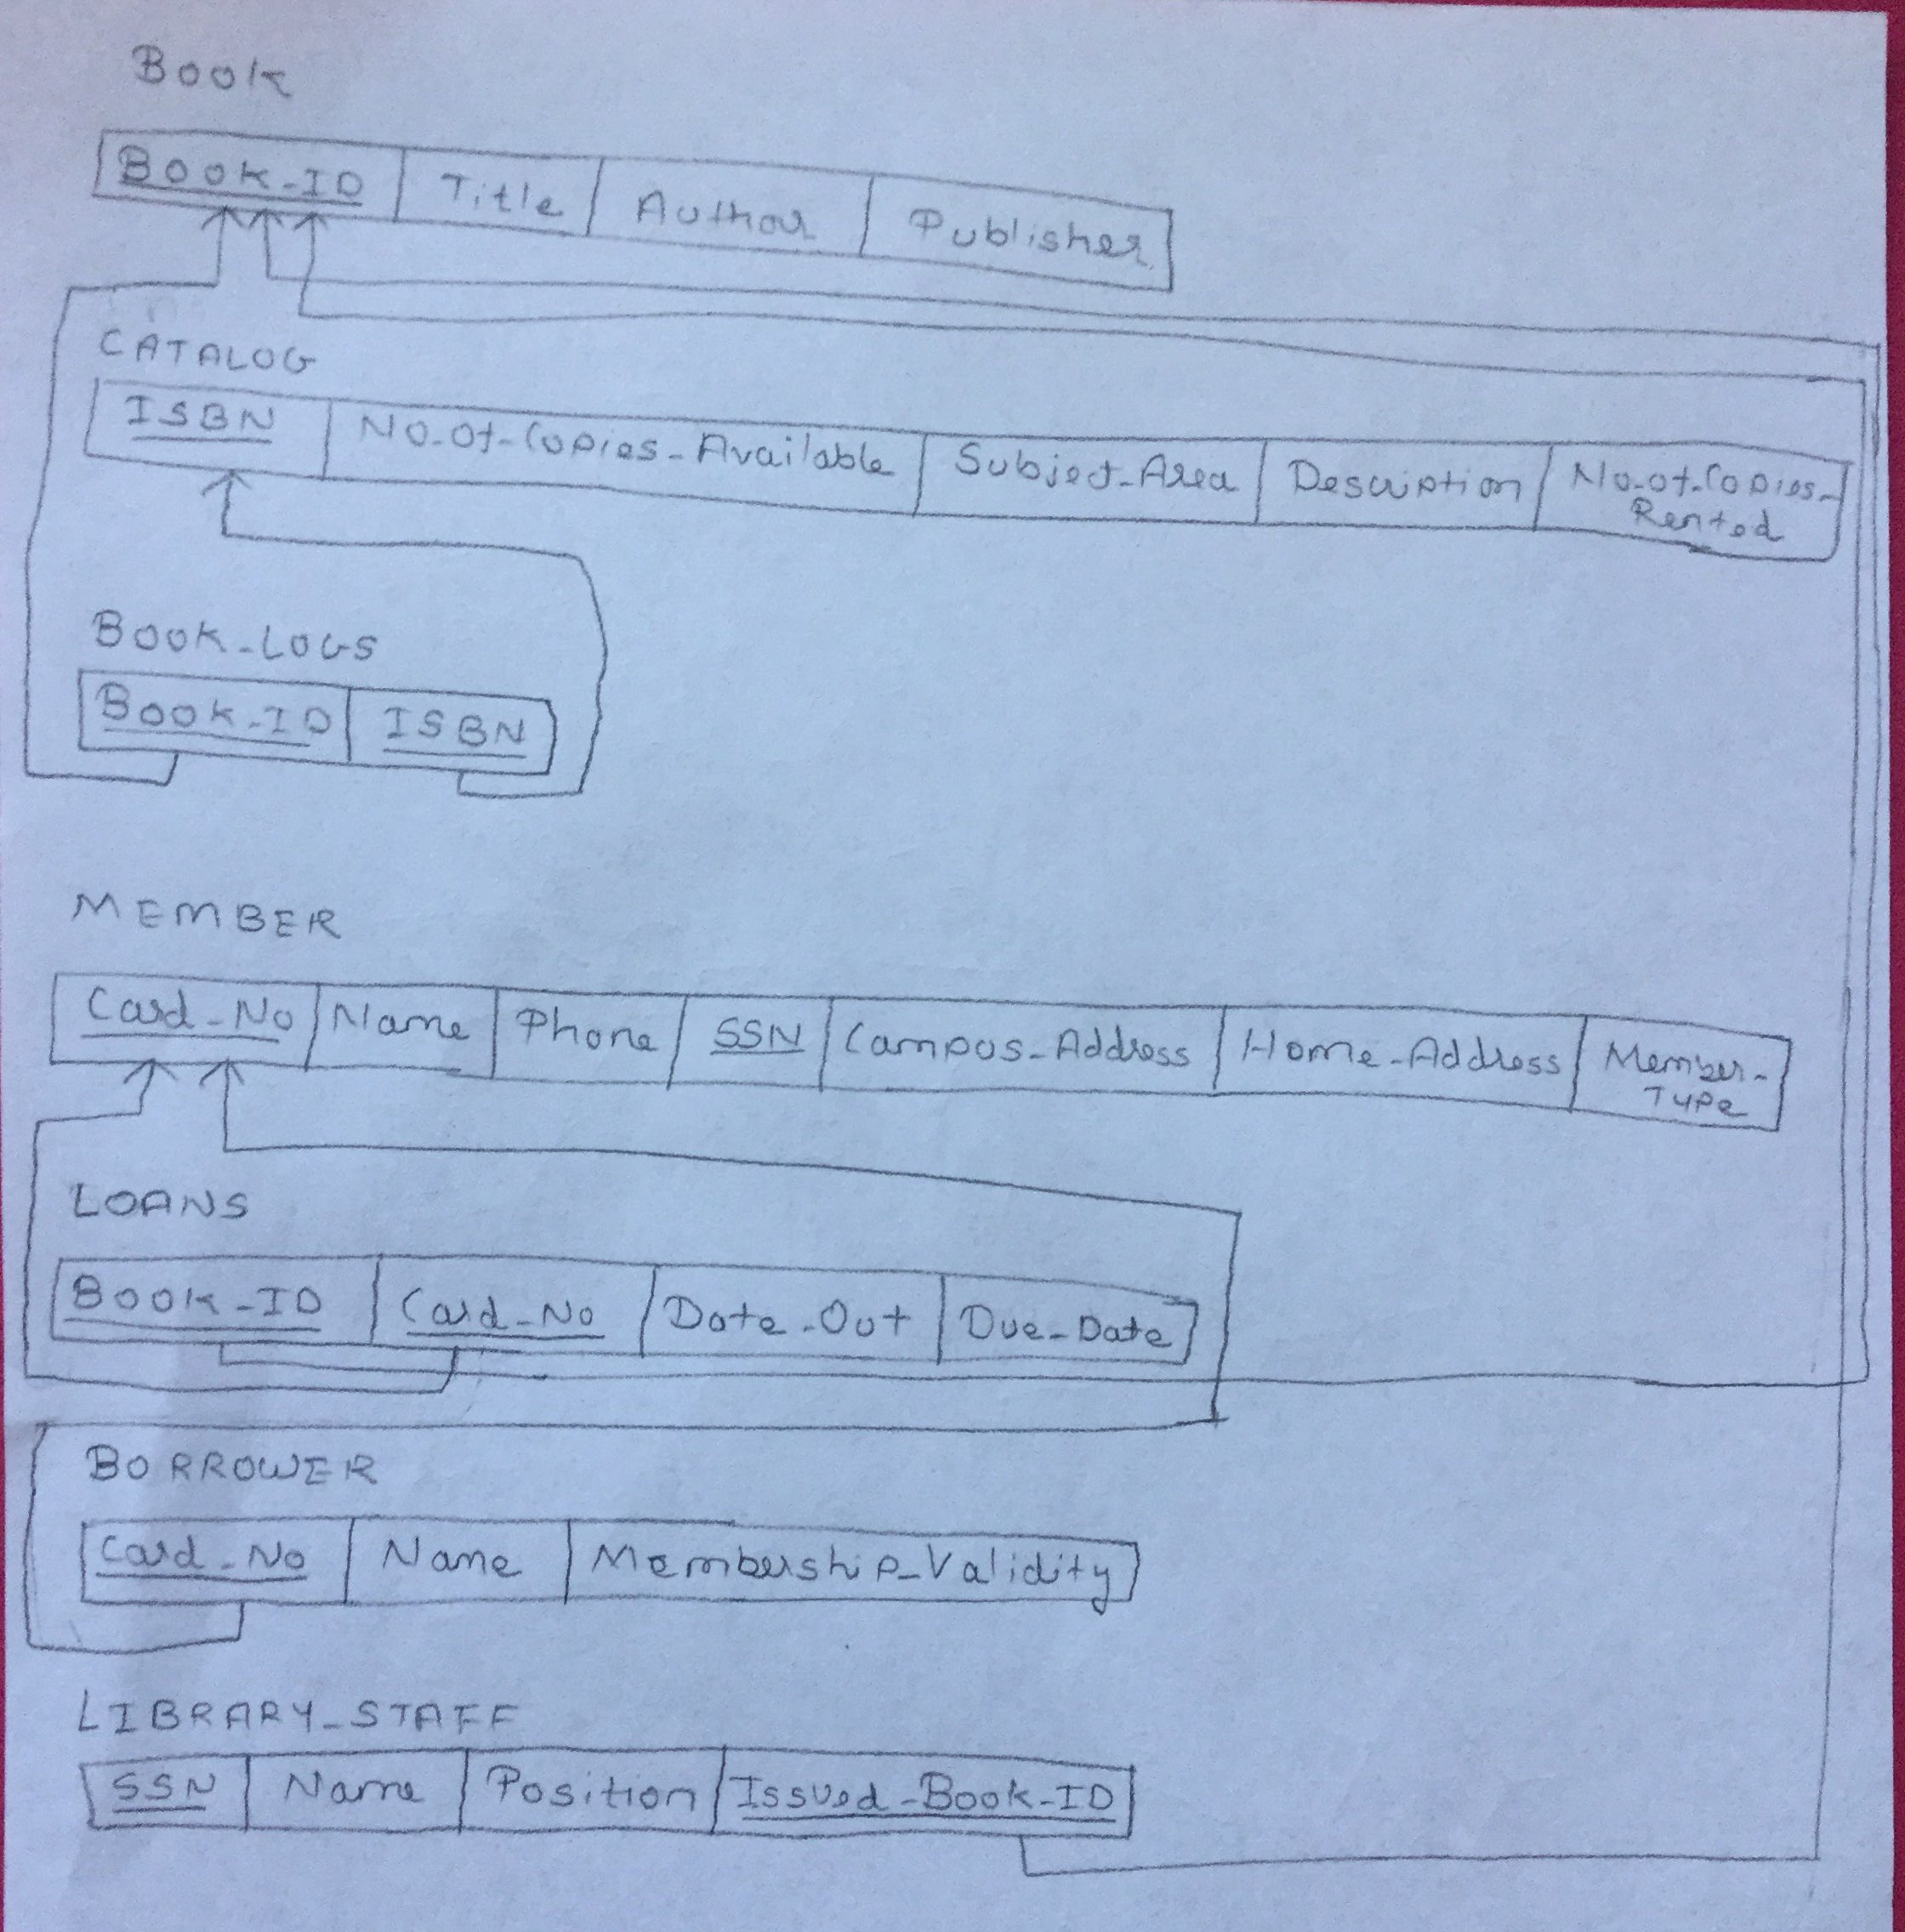 Book
Book_ID Title Author Publisher
CATALOG
ISBN No_Of_Copies_Available Subject_Area Description No_of_Copies_
Rented
BOOK_LOGS
Book_ID ISBN
MEMBER
Card_No Name Phone SSN Campus_Address Home_Address Member_
Type
LOANS
Book_ID Card_No Date_Out Due_Date
BORROWER
Card_No Name Membership_Validity
LIBRARY_STAFF
SSN Name Position Issued_Book_ID